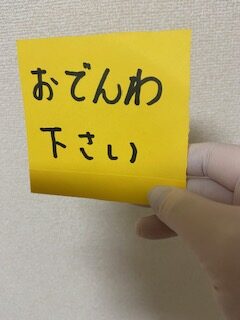 おでんわ
下さい